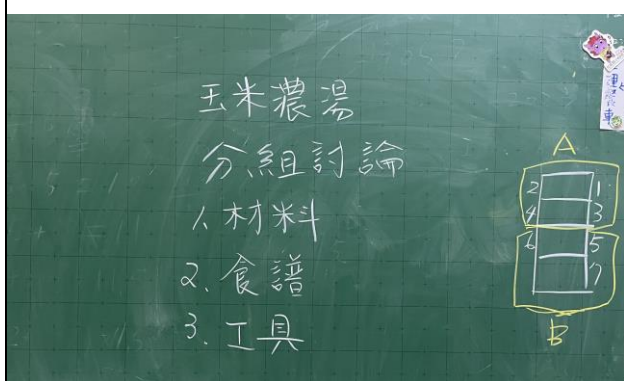 玉米濃湯
分組討論
1、材料
2、食譜
3、工具
A
2 1
4 3
6 5
7
B